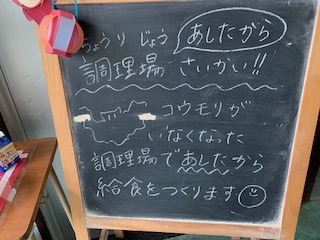 ちょうり じょう
あしたから
調理場 さいかい!!
コウモリが
いなくなった
調理場であしたから
給食をつくります